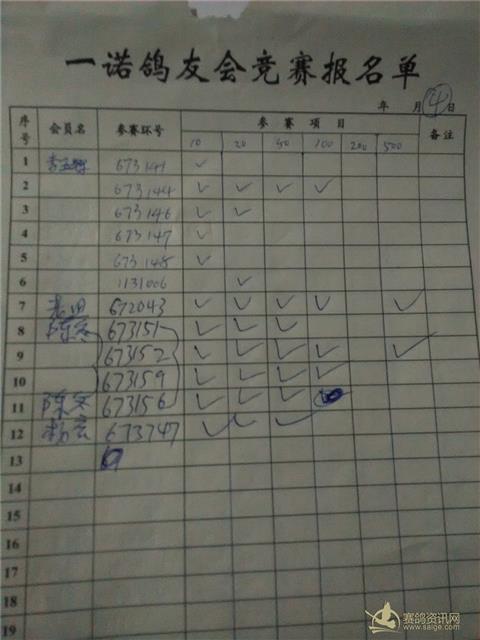 一诺鸽友会竞赛报名单
年 月 4 日
序号 会员名 参赛环号 参赛项目 备注
10 20 50 100 200 500
1 673141 ✓
2 673144 ✓ ✓ ✓ ✓
3 673146 ✓ ✓
4 673147 ✓
5 673148 ✓
6 1131006 ✓
7 672043 ✓ ✓ ✓ ✓ ✓
8 673151 ✓ ✓ ✓
9 673152 ✓ ✓ ✓ ✓ ✓
10 673159 ✓ ✓ ✓ ✓
11 673156 ✓ ✓ ✓
12 杨宏 673747 ✓ ✓ ✓
13
14
15
16
17
18
19
赛鸽资讯网
www.saige.com